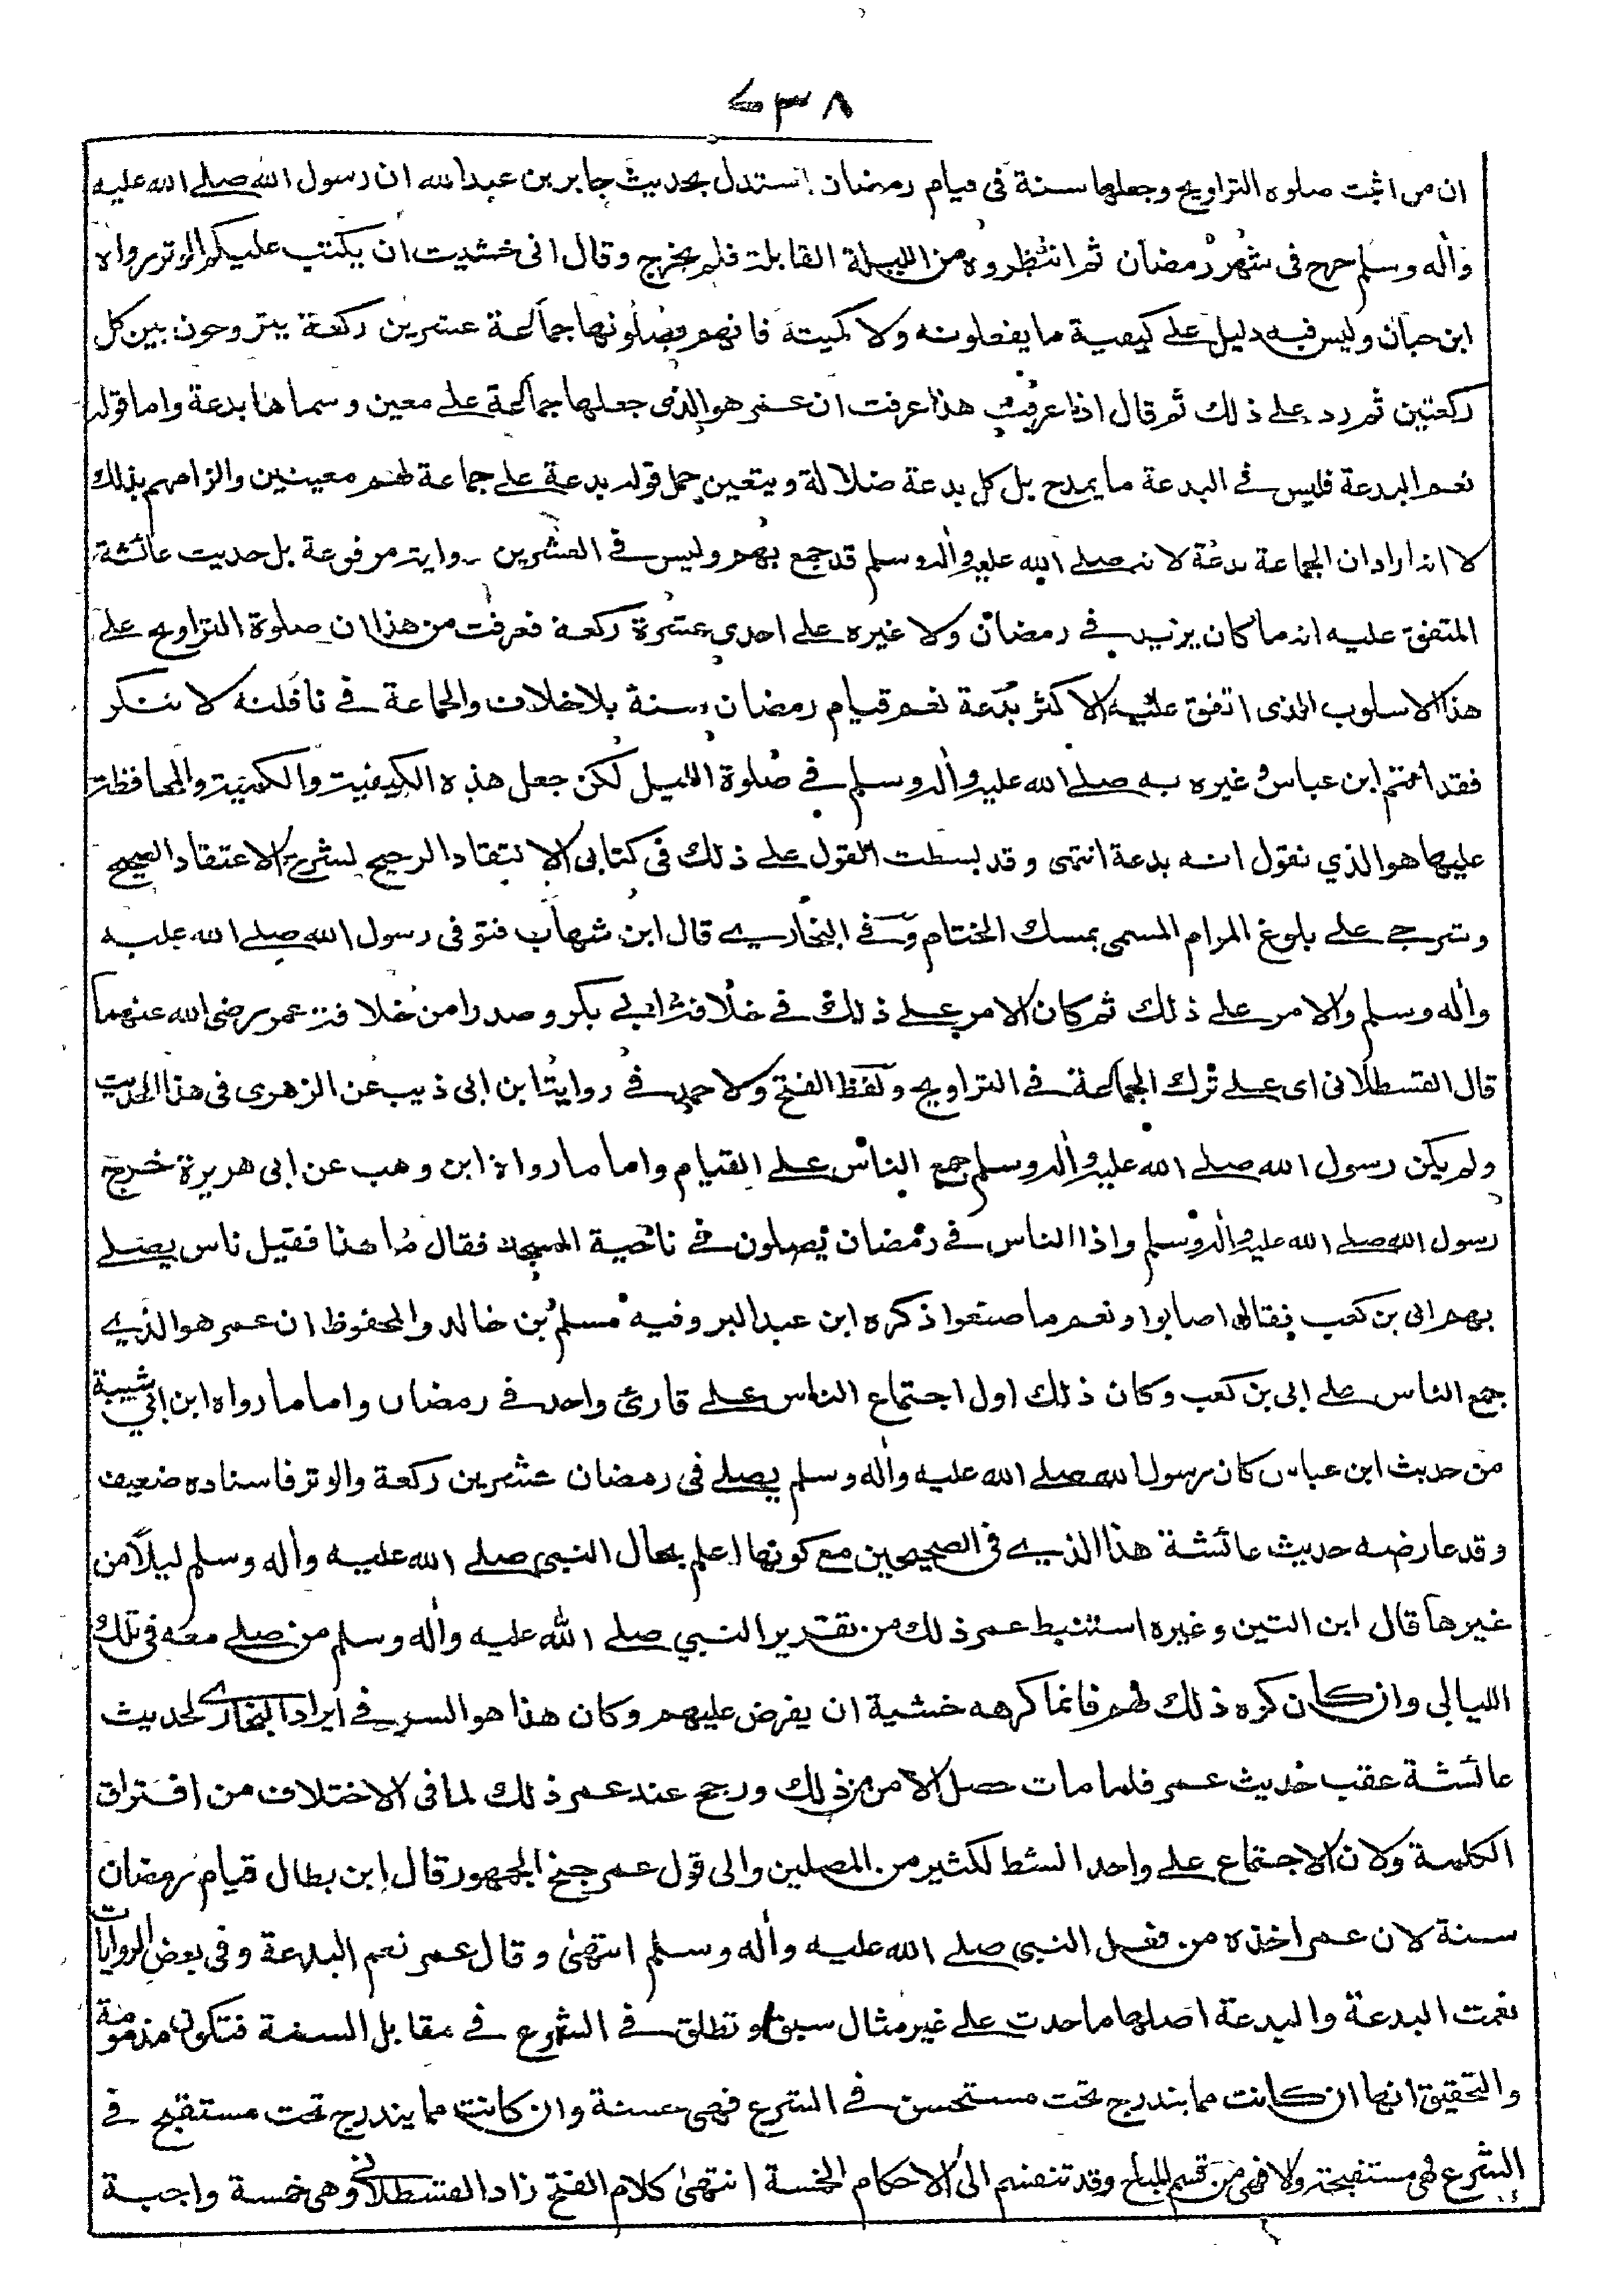 ٧٣٨
ان من اثبت صلوة التراويح وجعلها سنة فى قيام رمضان استدل بحديث جابر بن عبدالله ان رسول الله صلى الله عليه
واٰله وسلم خرج فى شهر رمضان ثم انتظروه من الليلة القابلة فلم يخرج وقال انى خشيت ان يكتب عليكم الوتر رواه
ابن حبان وليس فيه دليل على كيفية ما يفعلونه ولا كمية فانهم يصلونها جماعة عشرين ركعة يتروحون بين كل
ركعتين ثم رد على ذلك ثم قال اذا عرفت هذا عرفت ان عمر هو الذى جعلها جماعة على معين وسماها بدعة واما قوله
نعم البدعة فليس فى البدعة ما يمدح بل كل بدعة ضلالة ويتعين حمل قوله بدعة على جماعة لهم معينين والزامهم بذلك
لا انه اراد ان الجماعة بدعة لانه صلى الله عليه واٰله وسلم قد جمع بهم وليس فى العشرين رواية مرفوعة بل حديث عائشة
المتفق عليه انه ما كان يزيد فى رمضان ولا غيره على احدى عشرة ركعة فعرفت من هذا ان صلوة التراويح على
هذا الاسلوب الذى اتفق عليه الاكثر بدعة نعم قيام رمضان سنة بلا خلاف والجماعة فى نافلته لا تنكر
فقد ائتم ابن عباس وغيره به صلى الله عليه واٰله وسلم فى صلوة الليل لكن جعل هذه الكيفية والكمية والمحافظة
عليها هو الذي نقول انه بدعة انتهى وقد بسطت القول على ذلك فى كتابى الانتقاد الرجيح لشرح الاعتقاد الصحيح
وشرحى على بلوغ المرام المسمى بمسك الختام وفى البخاري قال ابن شهاب فتوفى رسول الله صلى الله عليه
واٰله وسلم والامر على ذلك ثم كان الامر على ذلك فى خلافة ابى بكر وصدرا من خلافة عمر رضى الله عنهما
قال القسطلانى اى على ترك الجماعة فى التراويح ولفظ الفتح ولاحمد فى رواية ابن ابى ذيب عن الزهرى فى هذا الحديث
ولم يكن رسول الله صلى الله عليه واٰله وسلم جمع الناس على القيام واما ما رواه ابن وهب عن ابى هريرة خرج
رسول الله صلى الله عليه واٰله وسلم واذا الناس فى رمضان يصلون فى ناحية المسجد فقال ما هذا فقيل ناس يصلى
بهم ابى بن كعب فقال اصابوا ونعم ما صنعوا ذكره ابن عبد البر وفيه مسلم بن خالد والمحفوظ ان عمر هو الذي
جمع الناس على ابى بن كعب وكان ذلك اول اجتماع الناس على قارئ واحد فى رمضان واما ما رواه ابن ابي شيبة
من حديث ابن عباس كان رسول الله صلى الله عليه واٰله وسلم يصلى فى رمضان عشرين ركعة والوتر فاسناده ضعيف
وقد عارضه حديث عائشة هذا الذي فى الصحيحين مع كونها اعلم بحال النبي صلى الله عليه واٰله وسلم ليلاً من
غيرها قال ابن التين وغيره استنبط عمر ذلك من تقرير النبي صلى الله عليه واٰله وسلم من صلى معه فى تلك
الليالي وان كان كره ذلك لهم فانما كرهه خشية ان يفرض عليهم وكان هذا هو السر فى ايراد البخاري لحديث
عائشة عقب حديث عمر فلما مات حصل الامن من ذلك ورجح عند عمر ذلك لما فى الاختلاف من افتراق
الكلمة ولان الاجتماع على واحد انشط لكثير من المصلين والى قول عمر جنح الجمهور قال ابن بطال قيام رمضان
سنة لان عمر اخذه من فعل النبي صلى الله عليه واٰله وسلم انتهىٰ وقال عمر نعم البدعة وفى بعض الروايات
نعمت البدعة والبدعة اصلها ما احدث على غير مثال سبق وتطلق فى الشرع فى مقابل السنة فتكون مذمومة
والتحقيق انها ان كانت مما يندرج تحت مستحسن فى الشرع فهى حسنة وان كانت مما يندرج تحت مستقبح فى
الشرع فهى مستقبحة ولا فهى من قسم المباح وقد تنقسم الى الاحكام الخمسة انتهىٰ كلام الفتح زاد القسطلانى وهى خمسة واجبة